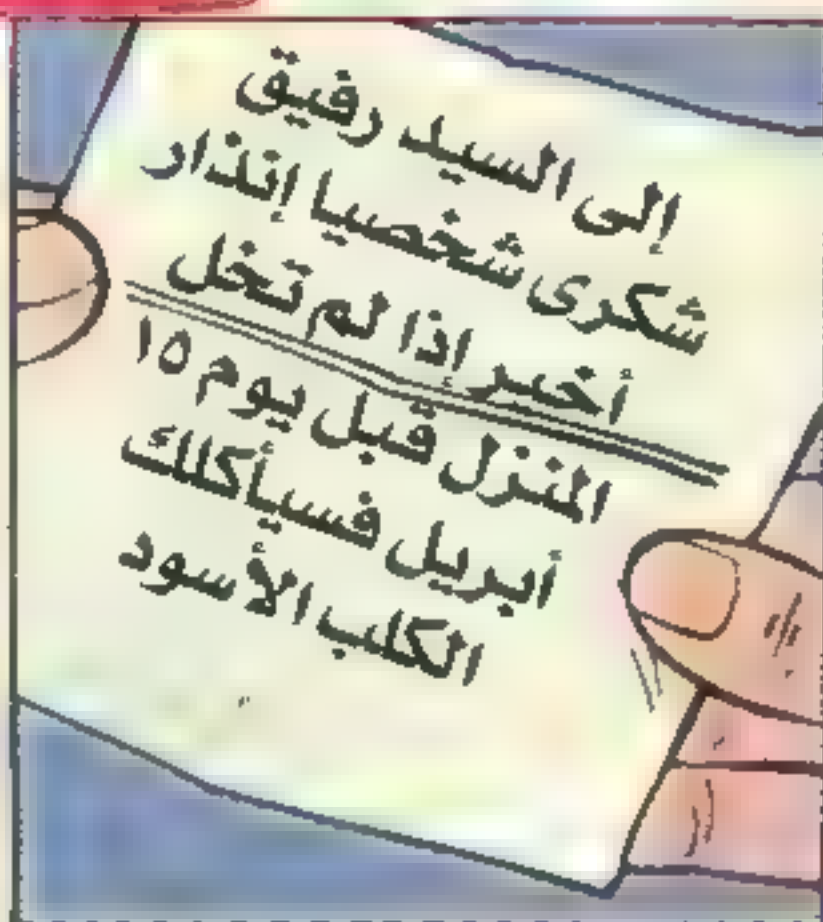 إلى السيد رفيق
شكرى شخصيا إنذار
أخير إذا لم تخل
المنزل قبل يوم ١٥
أبريل فسيأكلك
الكلب الأسود